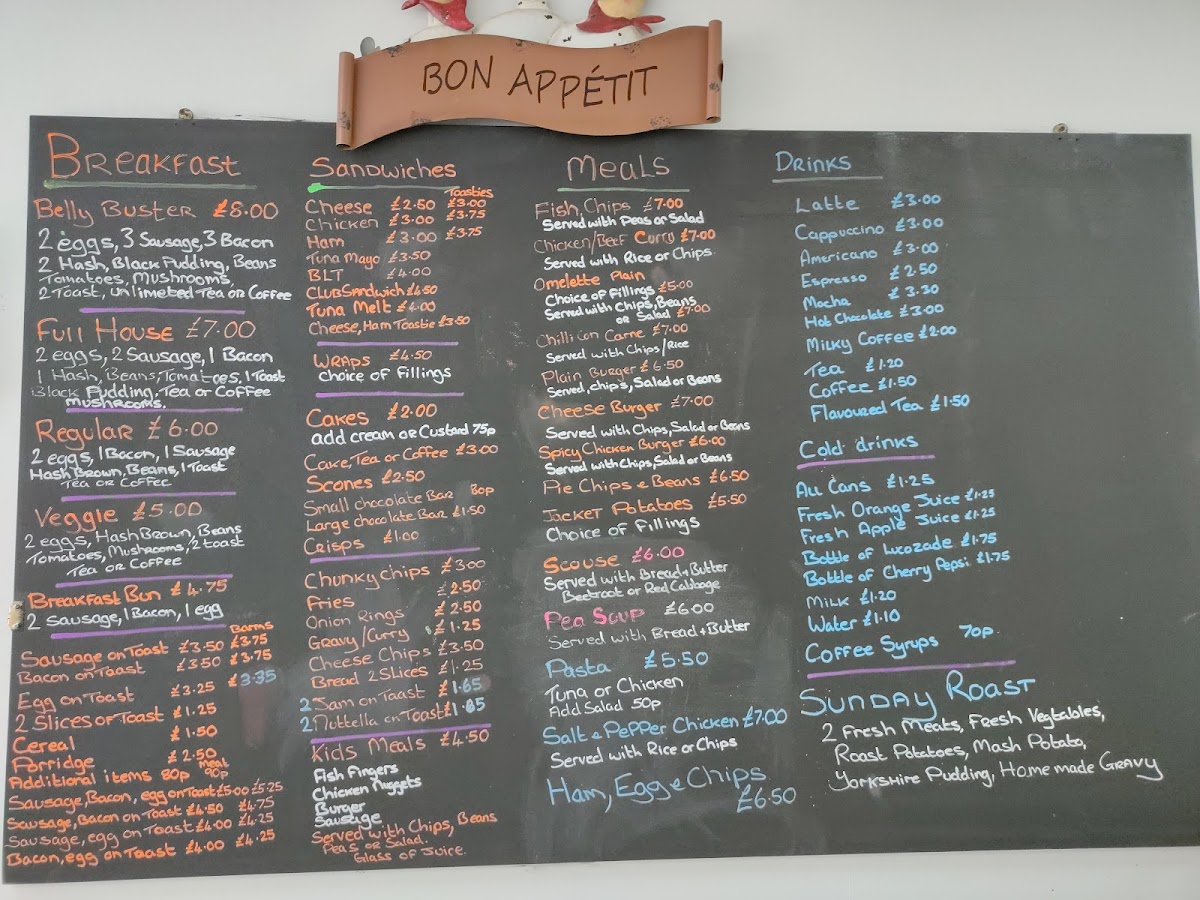 BON APPÉTIT
BREAKFAST
BELLY BUSTER £8.00
2 eggs, 3 Sausage, 3 Bacon
2 Hash, Black Pudding, Beans
Tomatoes, Mushrooms,
2 Toast, unlimeted Tea OR Coffee
FULL HOUSE £7.00
2 eggs, 2 Sausage, 1 Bacon
1 Hash, Beans, Tomatoes, 1 Toast
Black Pudding, Tea or Coffee
Mushrooms.
REGULAR £6.00
2 eggs, 1 Bacon, 1 Sausage
Hash Brown, Beans, 1 Toast
Tea or Coffee
VEGGIE £5.00
2 eggs, Hash Brown, Beans
Tomatoes, Mushrooms, 2 toast
Tea or Coffee
Breakfast Bun £4.75
2 Sausage, 1 Bacon, 1 egg
Barms
Sausage on Toast £3.50 £3.75
Bacon on Toast £3.50 £3.75
Egg on Toast £3.25 £3.35
2 Slices of Toast £1.25
Cereal £1.50
Porridge £2.50
Additional items 80p meat 90p
Sausage, Bacon, egg on Toast £5.00 £5.25
Sausage, Bacon on Toast £4.50 £4.75
Sausage, egg on Toast £4.00 £4.25
Bacon, egg on Toast £4.00 £4.25
SANDWICHES
Toasties
Cheese £2.50 £3.00
Chicken £3.00 £3.75
Ham £3.00 £3.75
Tuna Mayo £3.50
BLT £4.00
Club Sandwich £4.50
Tuna Melt £4.00
Cheese, Ham Toastie £3.50
WRAPS £4.50
Choice of Fillings
Cakes £2.00
add cream or Custard 75p
Cake, Tea or Coffee £3.00
Scones £2.50
Small chocolate Bar 80p
Large chocolate Bar £1.50
Crisps £1.00
Chunky Chips £3.00
Fries £2.50
Onion Rings £2.50
Gravy/Curry £1.25
Cheese Chips £3.50
Bread 2 Slices £1.25
2 Jam on Toast £1.65
2 Nuttella on Toast £1.85
Kids Meals £4.50
Fish Fingers
Chicken Nuggets
Burger
Sausage
Served with Chips, Beans
Peas or Salad.
Glass of Juice.
MEALS
Fish, Chips £7.00
Served with Peas or Salad
Chicken/Beef Curry £7.00
Served with Rice or Chips
Omelette Plain
Choice of Fillings £5.00
Served with Chips, Beans
or Salad £7.00
Chilli Con Carne £7.00
Served with Chips/Rice
Plain Burger £6.50
Served, chips, Salad or Beans
Cheese Burger £7.00
Served with Chips, Salad or Beans
Spicy Chicken Burger £6.00
Served with Chips, Salad or Beans
Pie Chips & Beans £6.50
Jacket Potatoes £5.50
Choice of Fillings
Scouse £6.00
Served with Bread + Butter
Beetroot or Red Cabbage
Pea Soup £6.00
Served with Bread + Butter
Pasta £5.50
Tuna or Chicken
Add Salad 50p
Salt & Pepper Chicken £7.00
Served with Rice or Chips
Ham, Egg & Chips
£6.50
DRINKS
Latte £3.00
Cappuccino £3.00
Americano £3.00
Espresso £2.50
Mocha £3.30
Hot Chocolate £3.00
Milky Coffee £2.00
Tea £1.20
Coffee £1.50
Flavoured Tea £1.50
Cold drinks
All Cans £1.25
Fresh Orange Juice £1.25
Fresh Apple Juice £1.25
Bottle of Lucozade £1.75
Bottle of Cherry Pepsi £1.75
Milk £1.20
Water £1.10
Coffee Syrups 70p.
SUNDAY ROAST
2 Fresh Meats, Fresh Vegtables,
Roast Potatoes, Mash Potato,
Yorkshire Pudding, Home made GRAVY